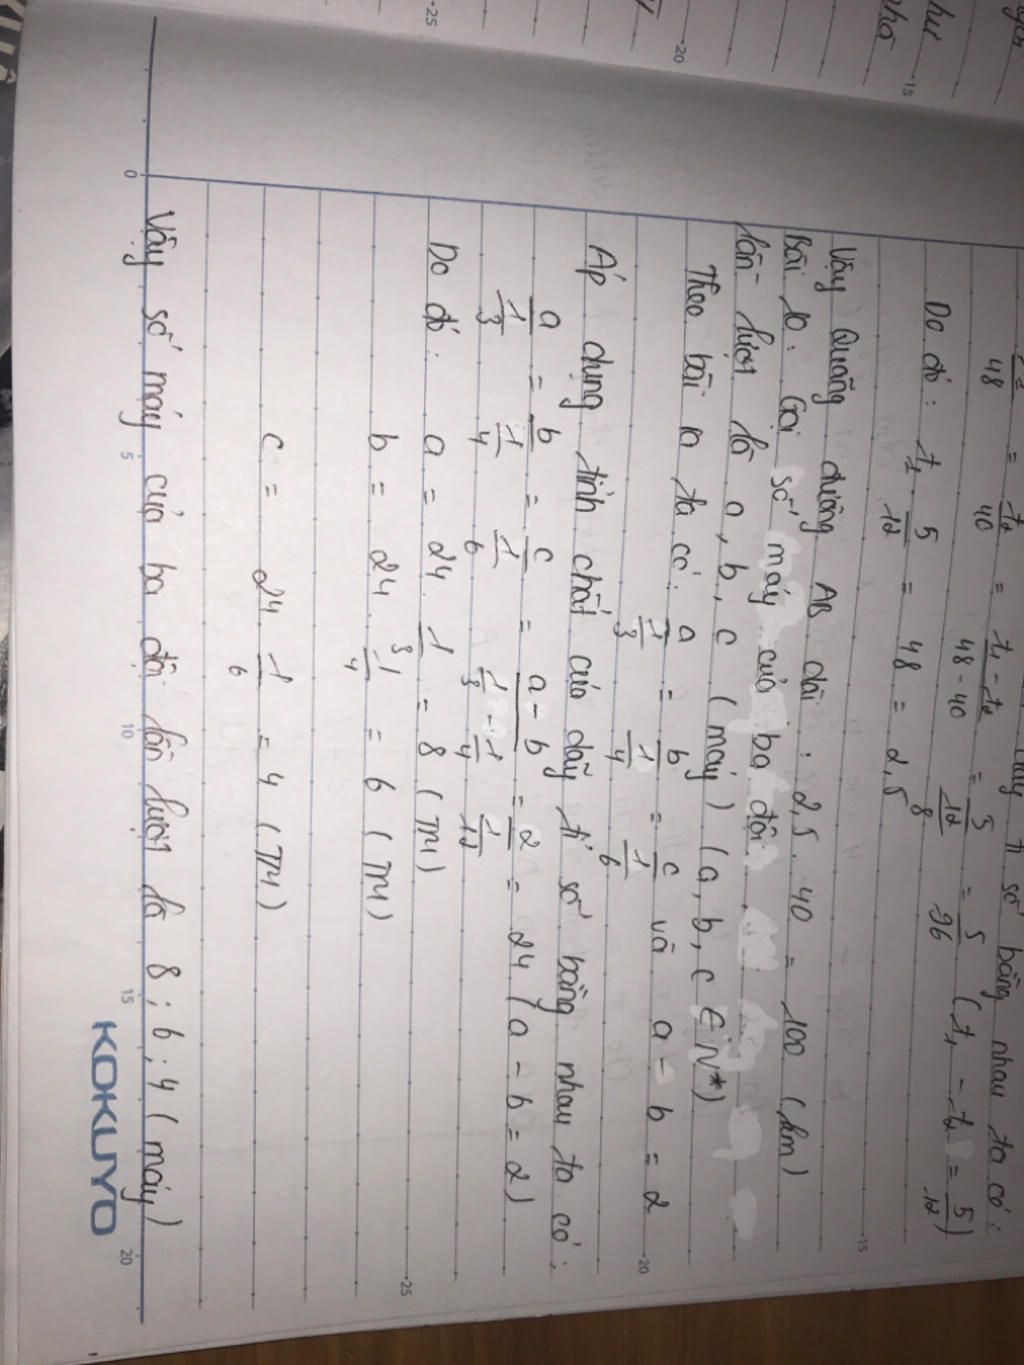 t1/48 = t2/40 = t1 - t2/48 - 40 = 5/12/8 = 5/96 (t1 - t2 = 5/12)
số bằng nhau ta có:
Do đó: t1 5/12 = 48 = 2,5
Vậy Quãng đường AB dài: 2,5. 40 = 100 (km)
Bài 10: Gọi số máy của ba đội
lần lượt là a, b, c (máy) (a, b, c ∈ N*)
Theo bài ra ta có: a/1/3 = b/1/4 = c/1/6 và a - b = 2
Áp dụng tính chất của dãy tỉ số bằng nhau ta có:
a/1/3 = b/1/4 = c/1/6 = a - b/1/3 - 1/4 = 2/1/12 = 24 (a - b = 2)
Do đó: a = 24. 1/3 = 8 (TM)
b = 24. 1/4 = 6 (TM)
c = 24. 1/6 = 4 (TM)
Vậy số máy của ba đội lần lượt là 8; 6; 4 (máy)
0 5 10 15 20
KOKUYO
15
20
25
15
20
25